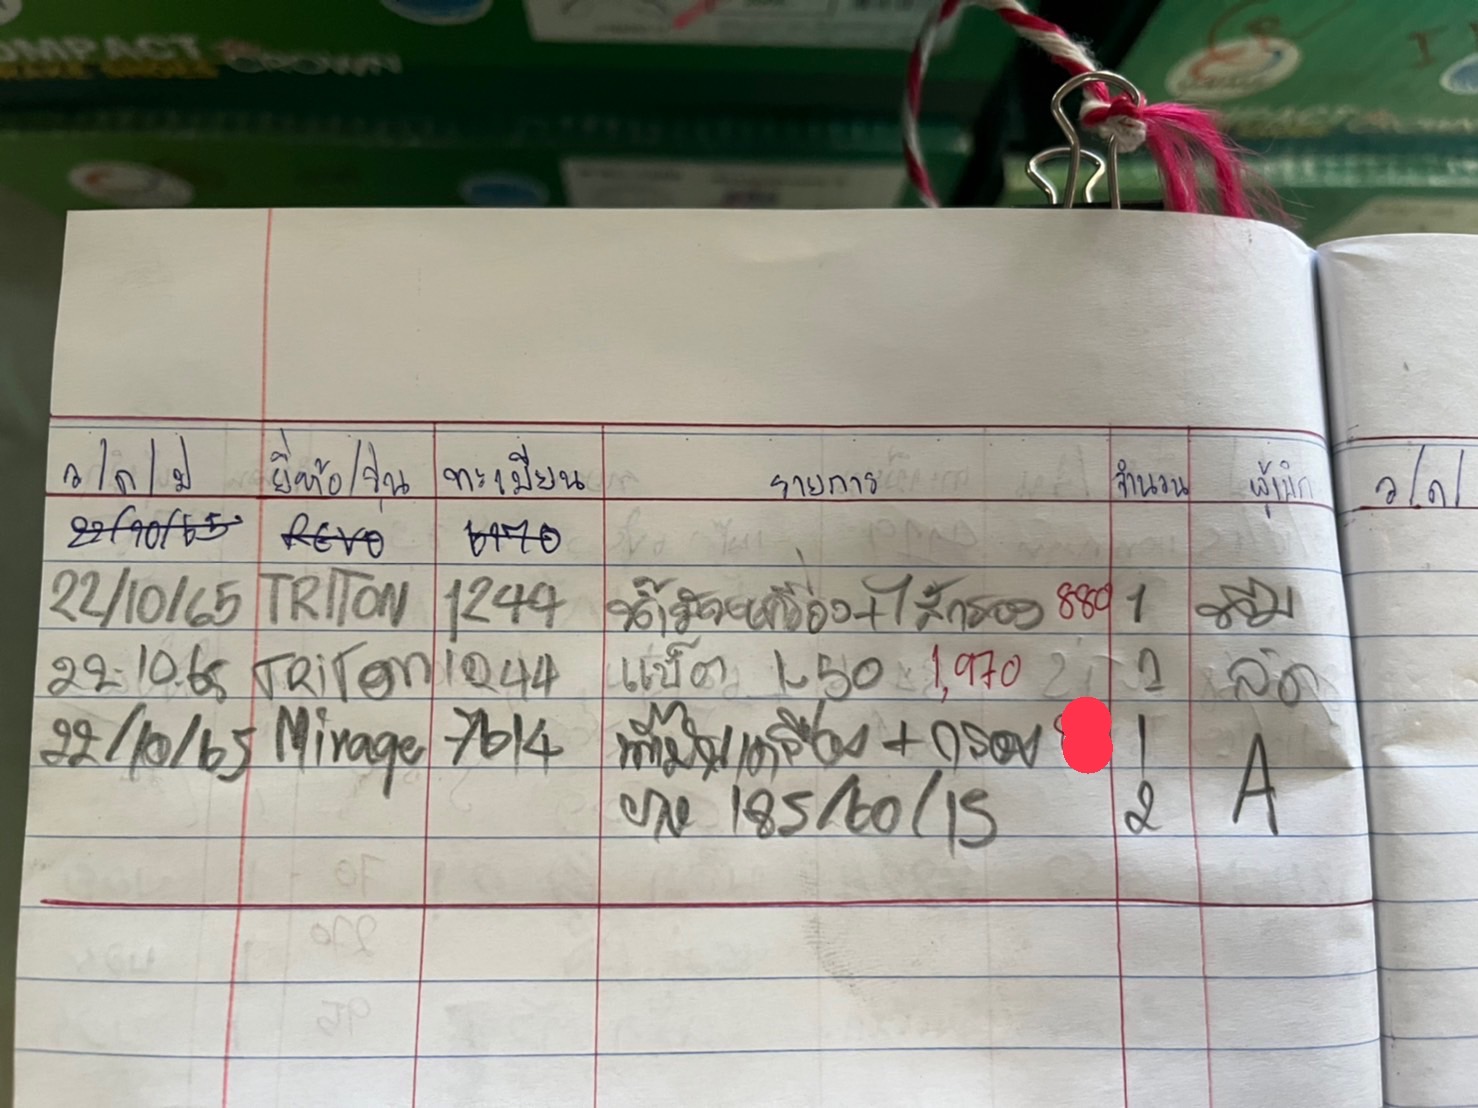 COMPACT CROWN
ว/ด/ป ยี่ห้อ/รุ่น ทะเบียน รายการ จำนวน ผู้เบิก ว/ด/
22/10/65 REVO 6170
22/10/65 TRITON 1244 น้ำมันเครื่อง+ไส้กรอง 880 1
22.10.65 TRITON 1244 แบ็ต L50 1,970 1
22/10/65 Mirage 7614 น้ำมันเครื่อง + กรอง 1 A
ยาง 185/60/15 2